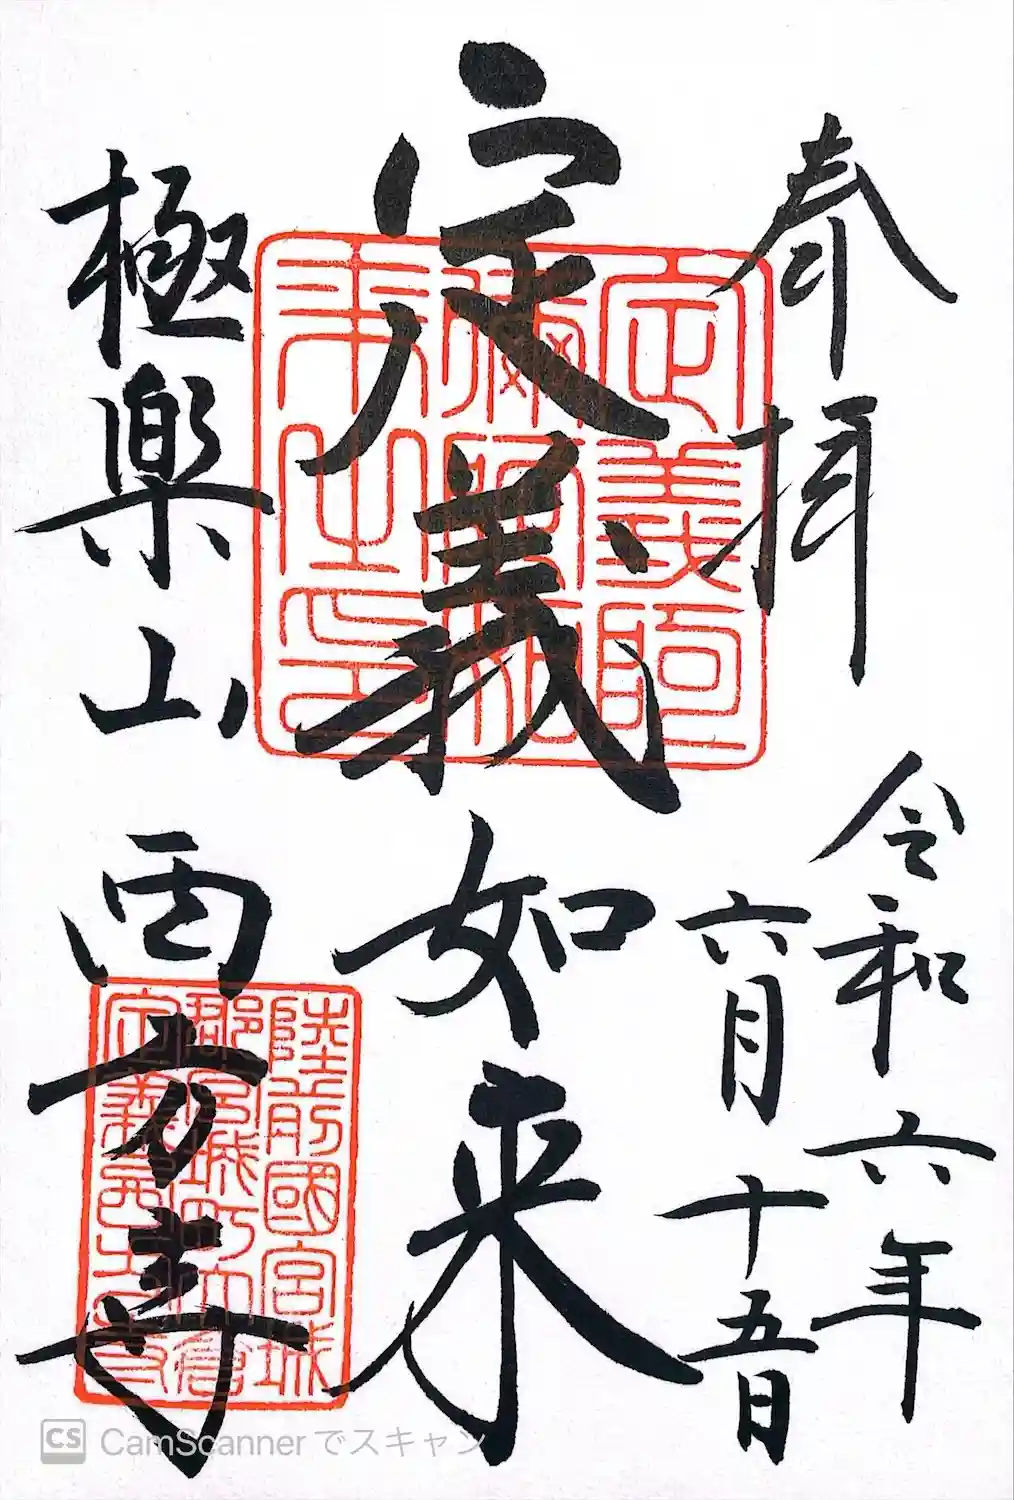 奉拝
令和六年
六月十五日
定義如来
極楽山
西方寺
定義阿
彌陀如
来之印
陸前國宮城
郡宮城町大倉
定義西方寺
CS CamScanner でスキャン